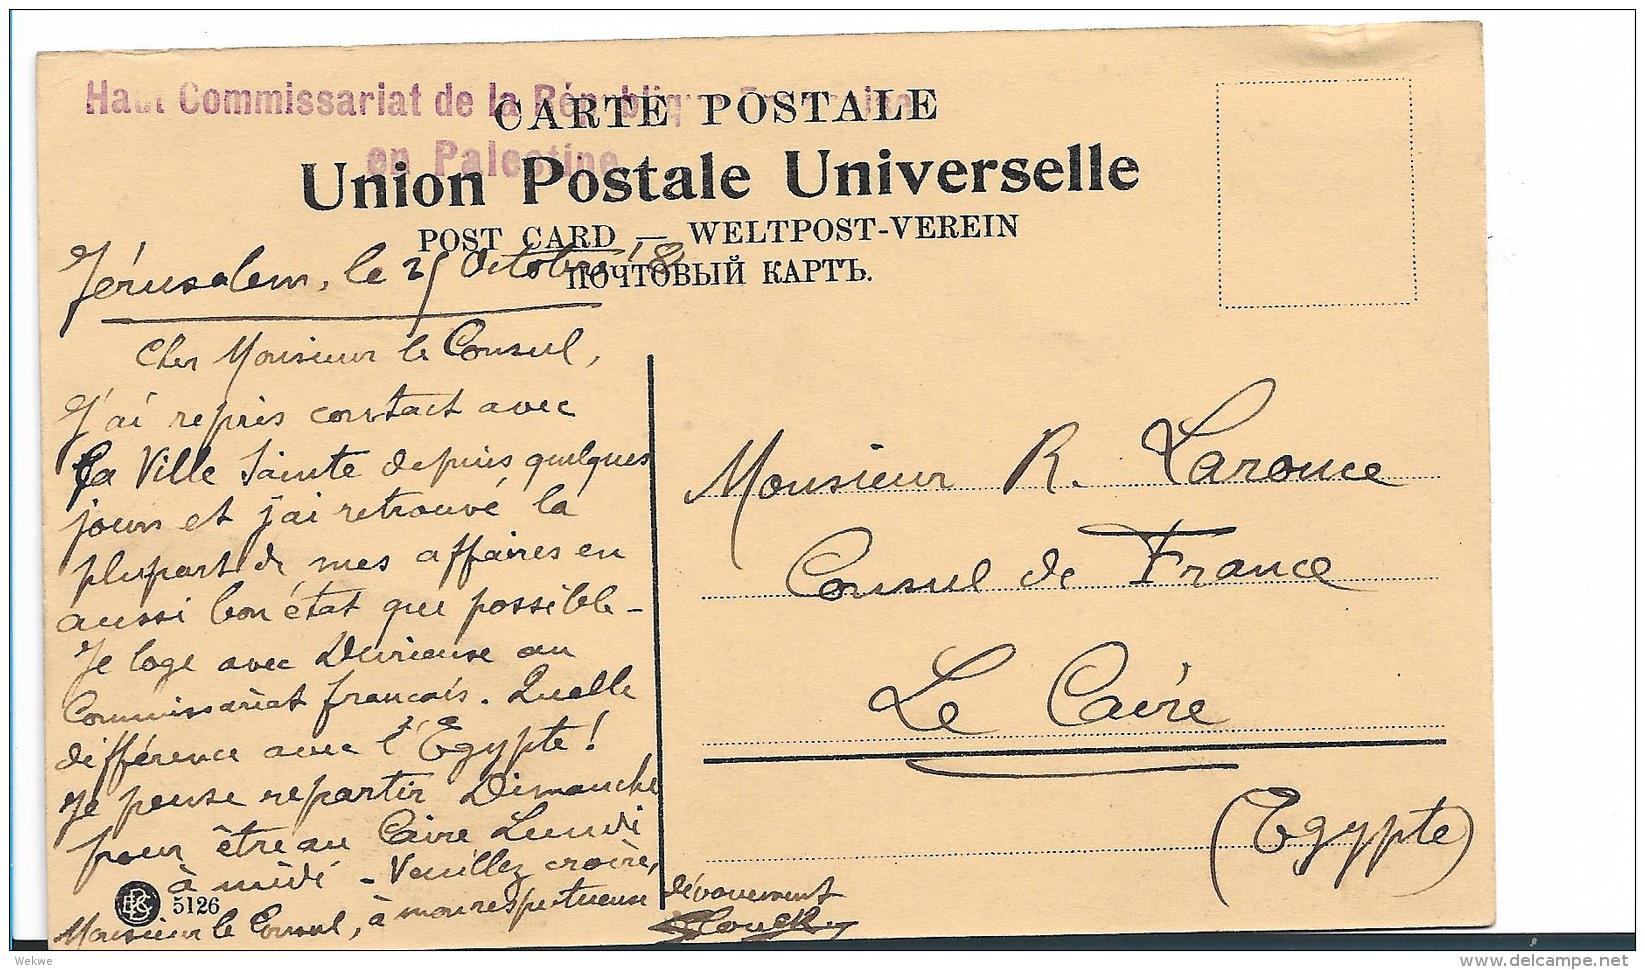 Haut Commissariat de la République Française
en Palestine
CARTE POSTALE
Union Postale Universelle
POST CARD — WELTPOST-VEREIN
ПОЧТОВЫЙ КАРТЪ.
Jérusalem, le 25 Octobre '18
Cher Monsieur le Consul,
J'ai repris contact avec
la Ville Sainte depuis quelques
jours et j'ai retrouvé la
plupart de mes affaires en
aussi bon état que possible -
Je loge avec au
Commissariat français. Quelle
différence avec l'Egypte!
Je pense repartir Dimanche
pour être au Caire Lundi
à midi - Veuillez croire,
Monsieur le Consul, à mon respectueux
dévouement
5126
Monsieur R. Larouce
Consul de France
Le Caire
(Egypte)
Wekwe
delcampe.net